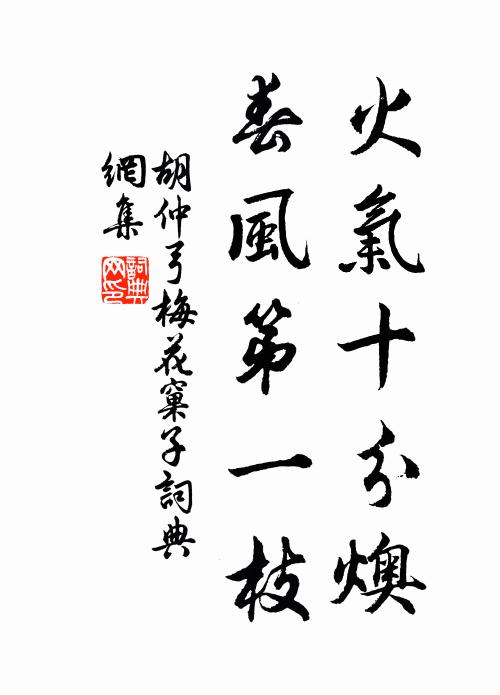 火氣十分燠
春風第一枝
胡仲弓梅花窠子詞典
網集
詞典網印